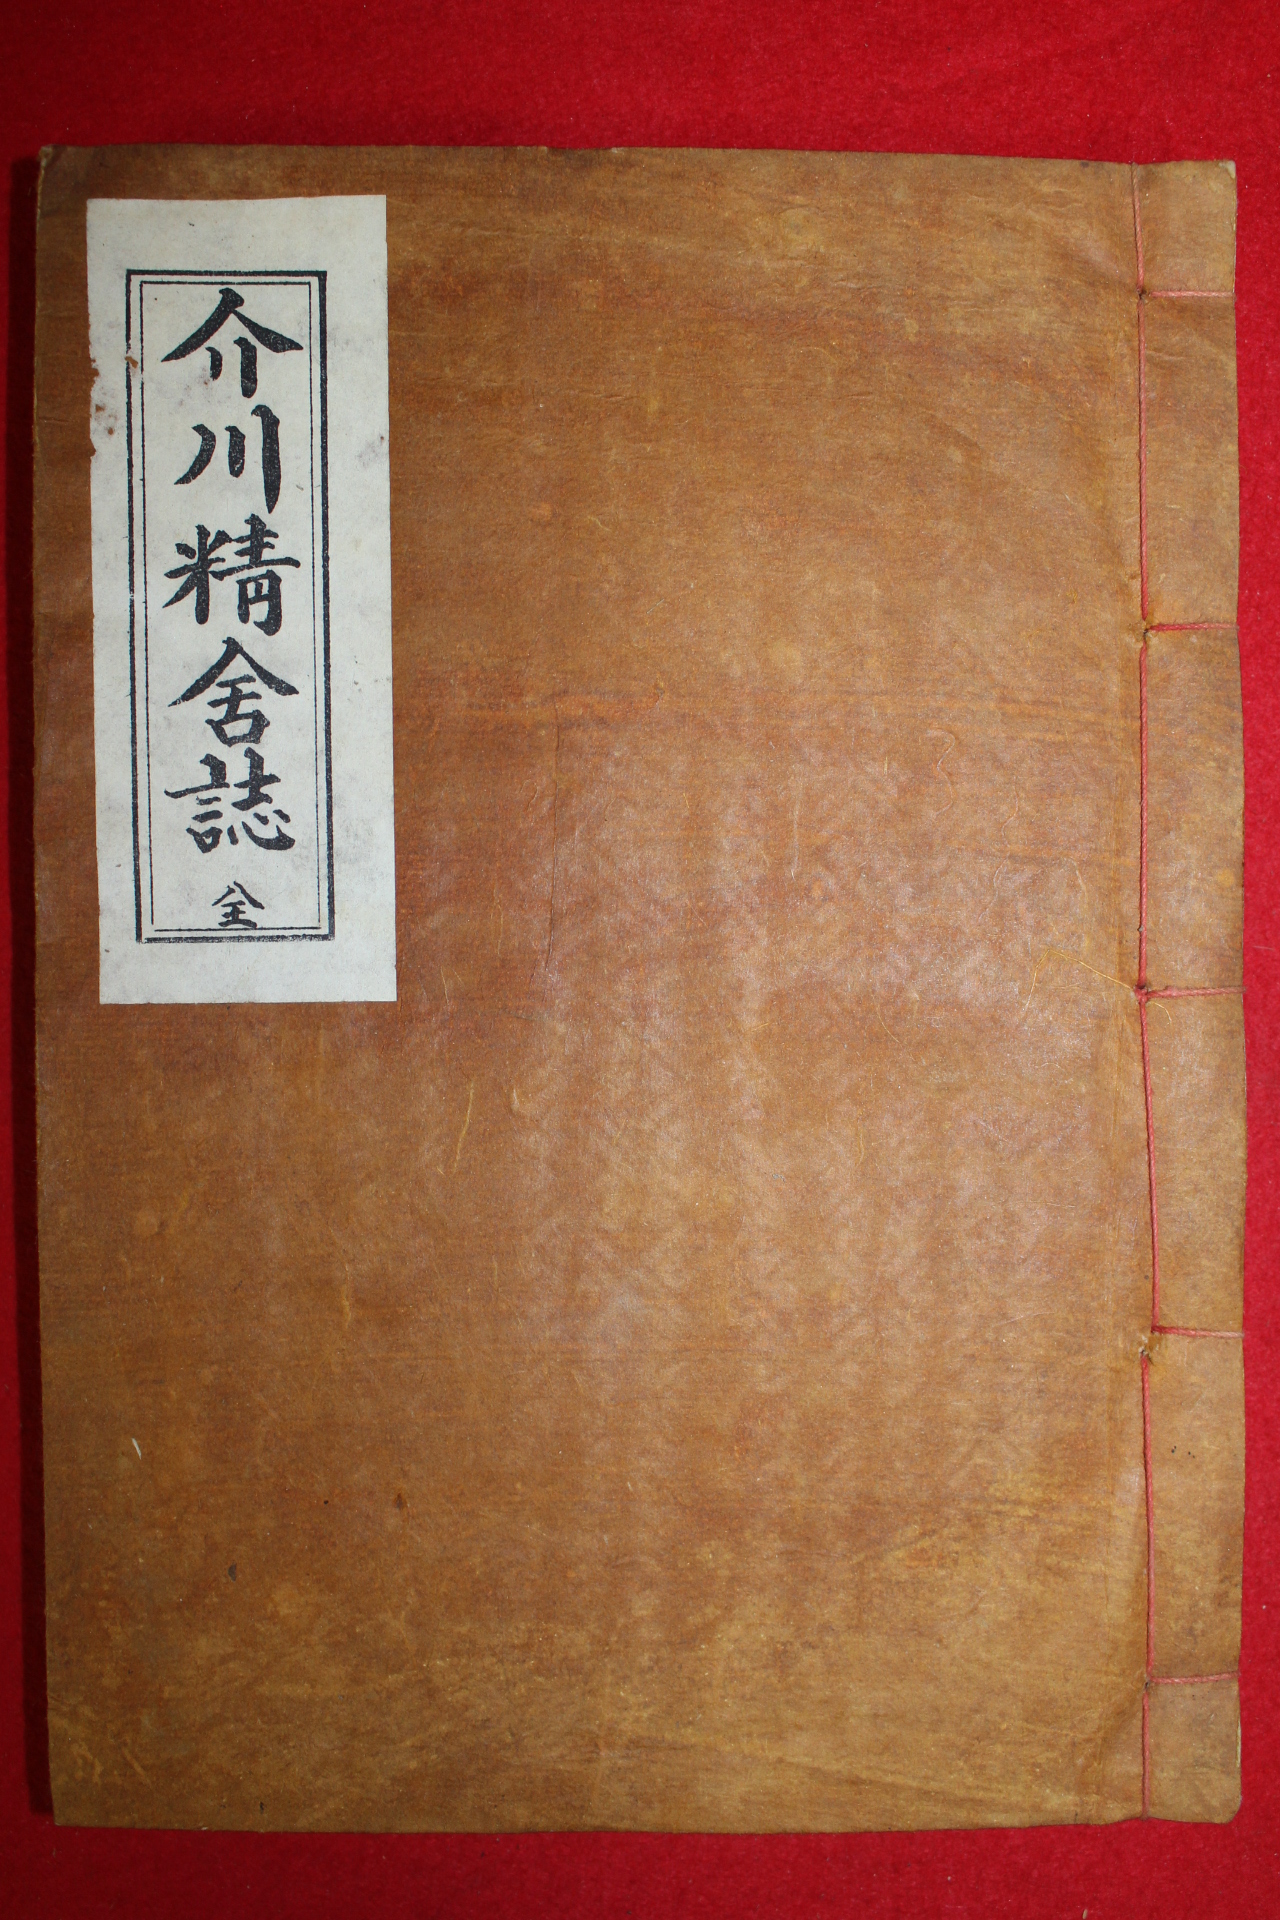 介川精舍誌 全